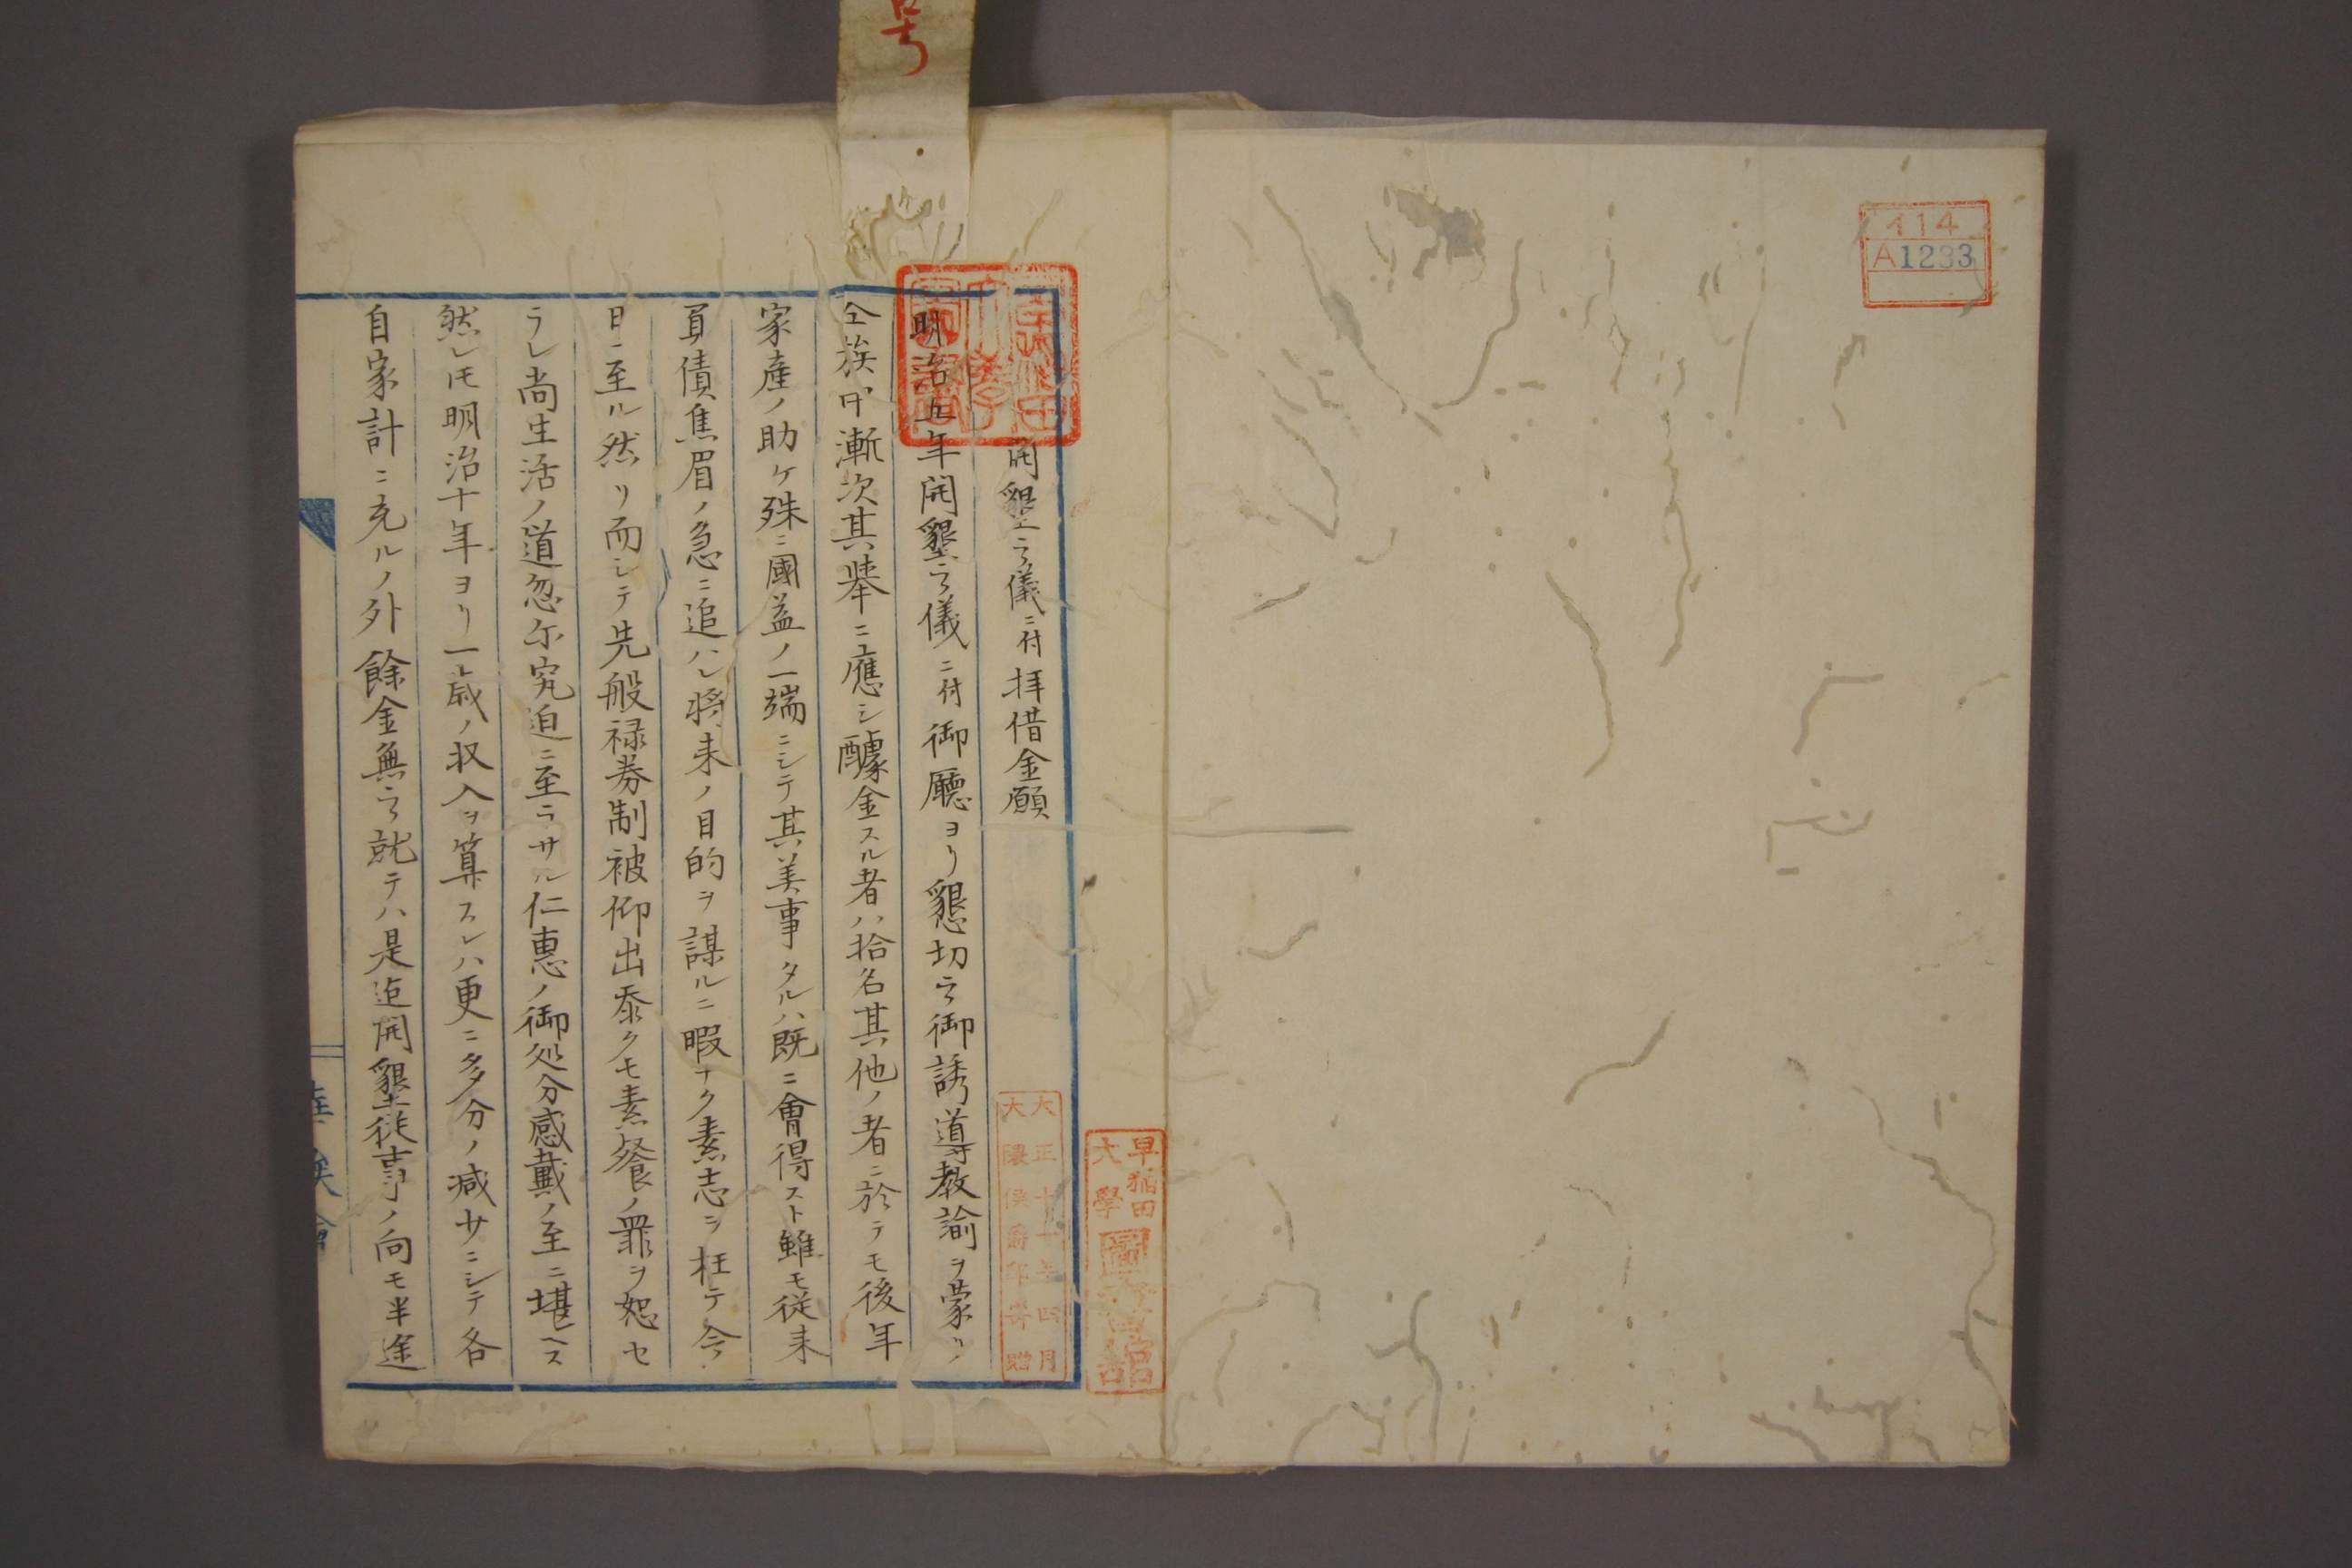 号
イ14
A1233
早稲田
大學
圖書館
大正十一年四月
大隈侯爵邸寄贈
開墾之儀ニ付拝借金願
明治五年開墾之儀ニ付御廳ヨリ懇切之御誘導教諭ヲ蒙リ
仝族中漸次其挙ニ應シ醵金スル者ハ拾名其他ノ者ニ於テモ後年
家産ノ助ケ殊ニ國益ノ一端ニシテ其美事タルハ既ニ會得スト雖モ従来
負債焦眉ノ急ニ追ハレ将来ノ目的ヲ謀ルニ暇ナク素志ヲ枉テ今
日ニ至ル然リ而シテ先般禄券制被仰出忝クモ素餐ノ罪ヲ恕セ
ラレ尚生活ノ道忽尓究迫ニ至ラサル仁惠ノ御処分感戴ノ至ニ堪ヘス
然レ𪜈明治十年ヨリ一歳ノ収入ヲ算スレハ更ニ多分ノ減少ニシテ各
自家計ニ充ルノ外餘金無之就テハ是迠開墾従事ノ向モ半途
華族會